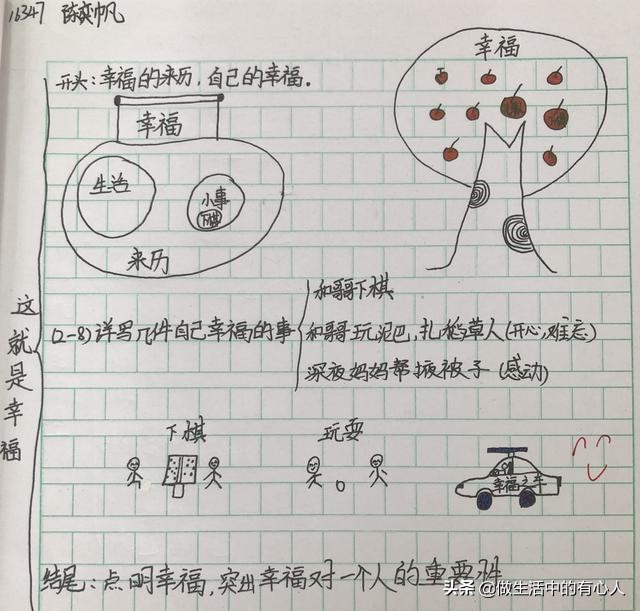 16347 陈奕帆
开头:幸福的来历,自己的幸福。
幸福
幸福
生活
小事
来历
这就是幸福
(2-8)详写几件自己幸福的事
和哥哥下棋
和哥哥玩泥巴,扎稻草人(开心,难忘)
深夜妈妈帮掖被子(感动)
下棋
玩耍
幸福之车
结尾:点明幸福,突出幸福对一个人的重要性
头条 @做生活中的有心人